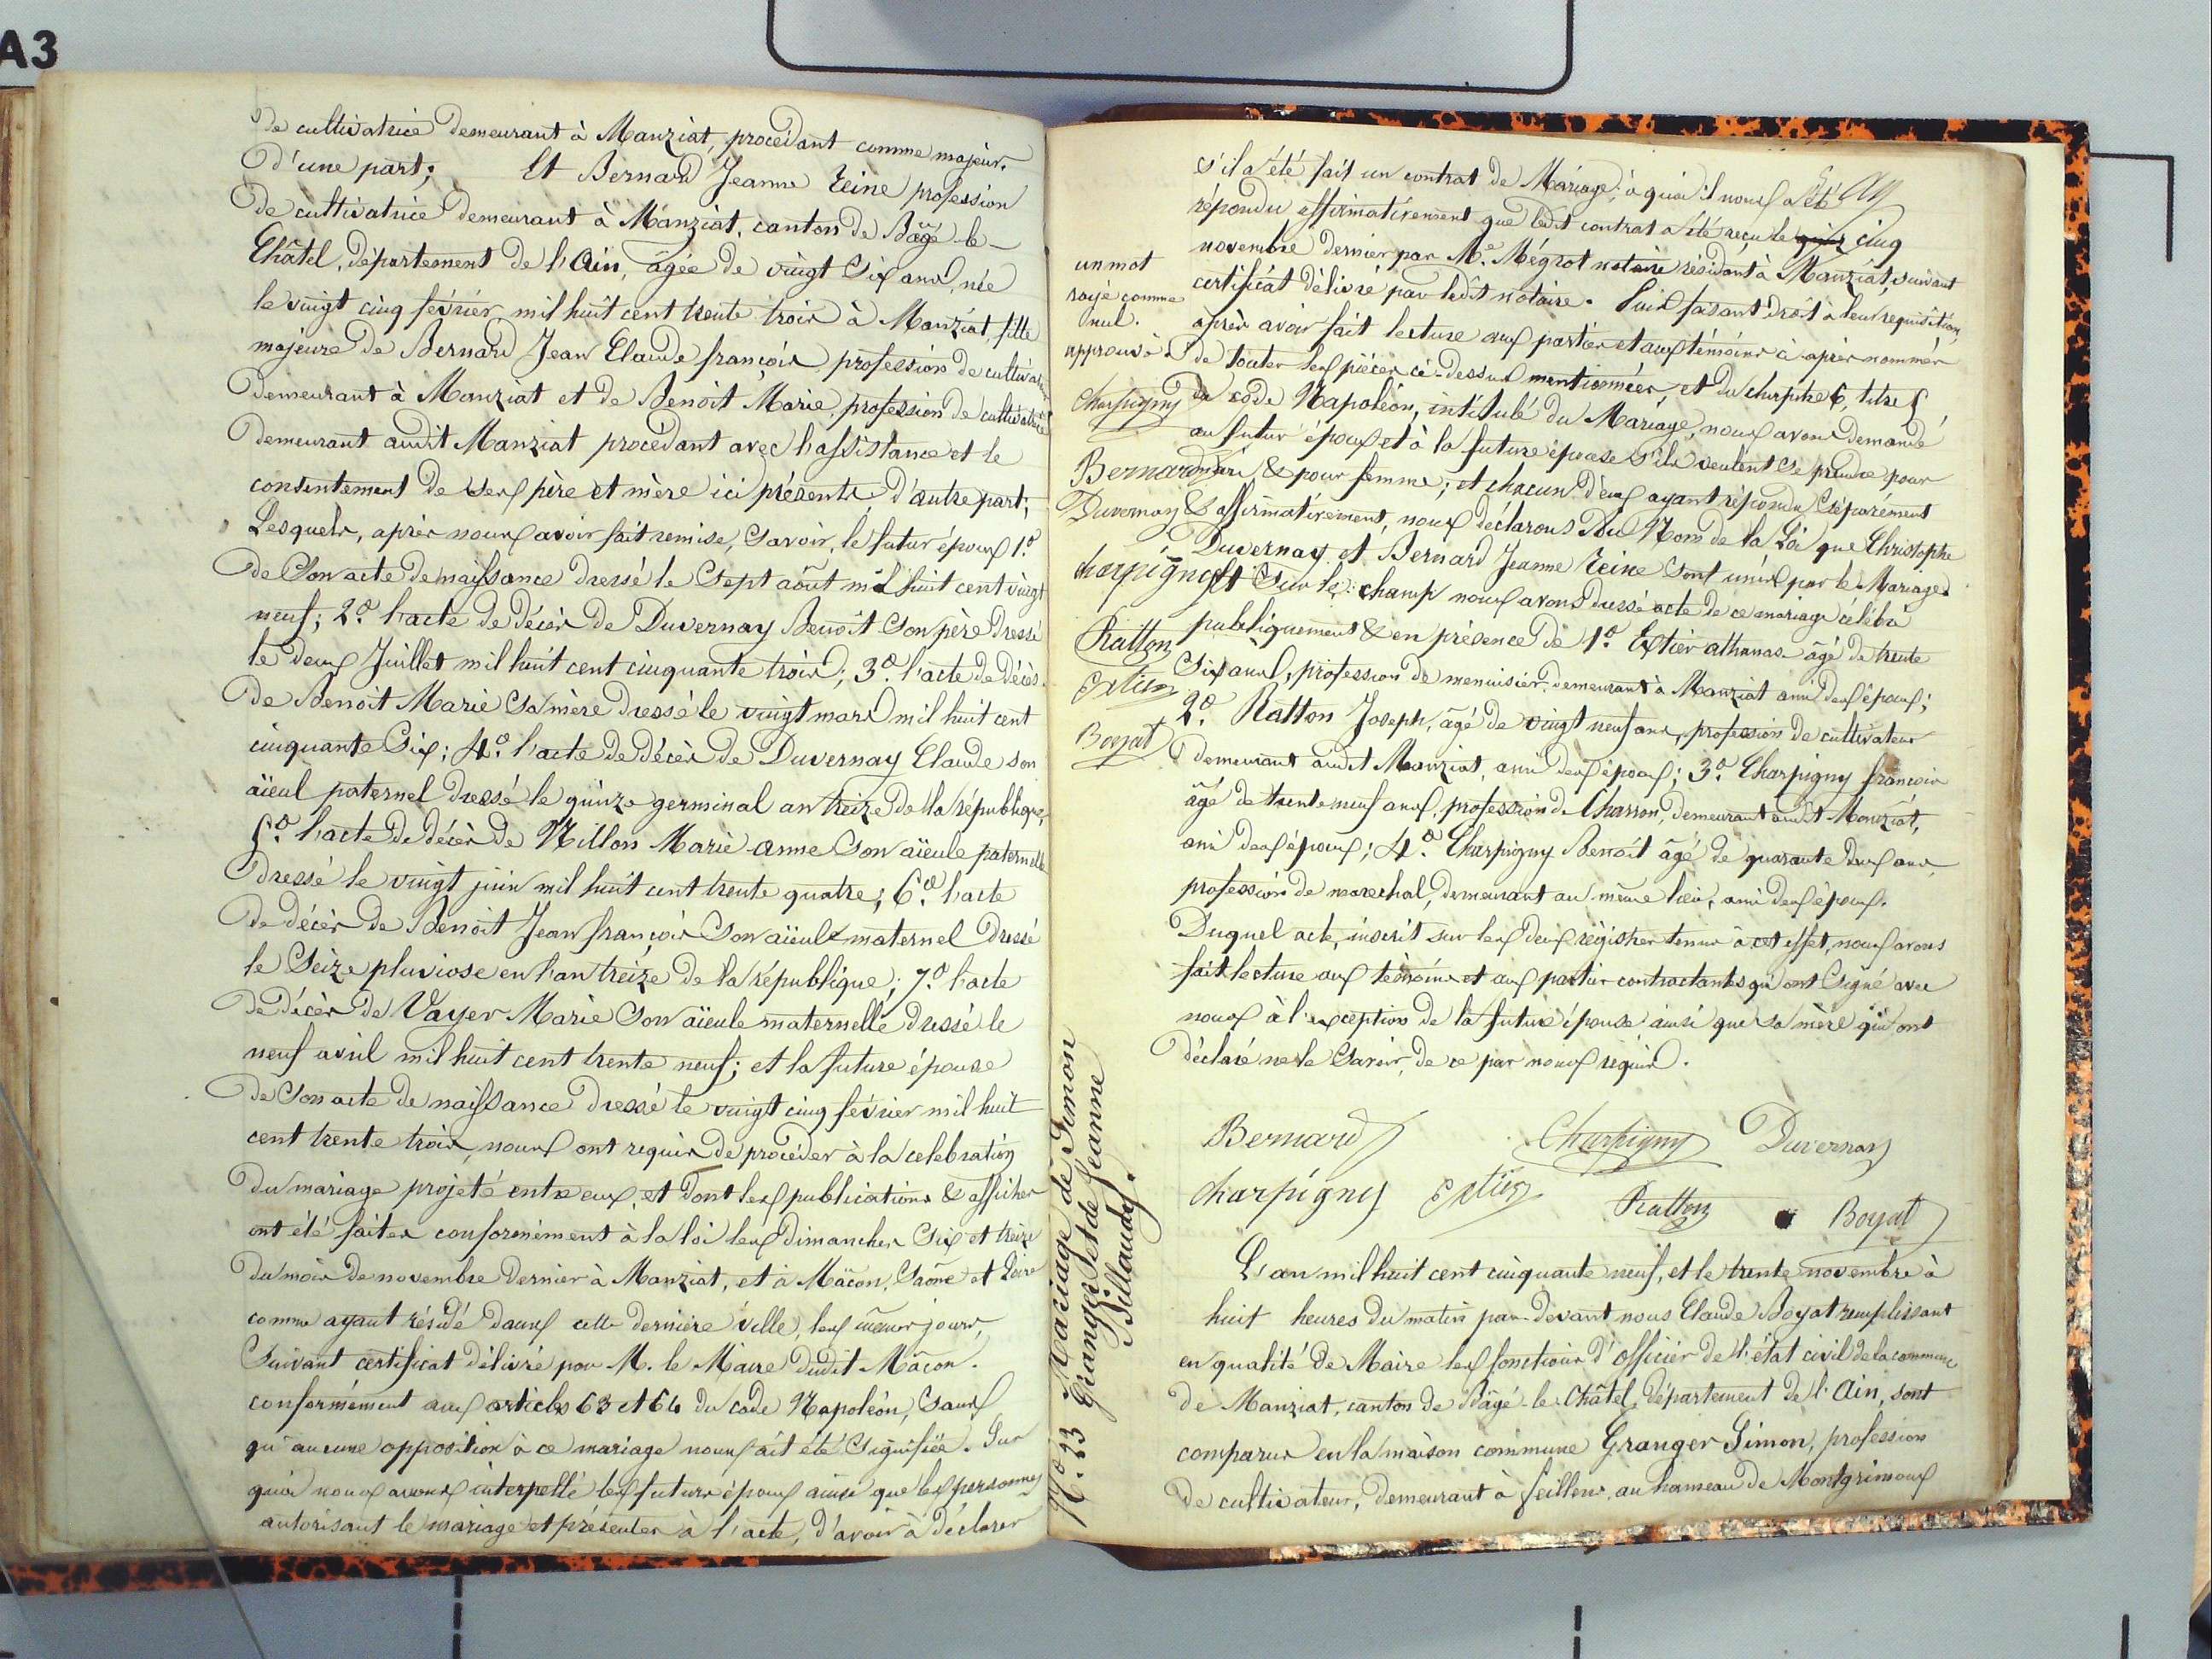 A3
de cultivatrice demeurant à Manziat, procédant comme majeur.
d'une part; Et Bernard Jeanne Reine profession
de cultivatrice demeurant à Manziat, canton de Bâgé-le-
Châtel, département de l'Ain, âgée de vingt six ans, née
le vingt cinq février mil huit cent trente trois à Manziat, fille
majeure de Bernard Jean Claude françois, profession de cultivateur
demeurant à Manziat et de Benoit Marie, profession de cultivatrice
demeurant audit Manziat procédant avec l'assistance et le
consentement de ses père et mère ici présents, d'autre part;
Lesquels, après nous avoir fait remise, savoir, le futur époux 1.o
de Son acte de naissance dressé le Sept aôut mil huit cent vingt
neuf; 2.o l'acte de décès de Duvernay Benoit Son père dressé
le deux Juillet mil huit cent cinquante trois; 3.o l'acte de décès
de Benoit Marie Sa mère dressé le vingt mars mil huit cent
cinquante Six; 4.o l'acte de décès de Duvernay Claude son
aïeul paternel dressé le quinze germinal an treize de la république,
5.o l'acte de décès de Nillon Marie anne Son aïeule paternelle
dressé le vingt juin mil huit cent trente quatre; 6.o l'acte
de décès de Benoit Jean françois Son aïeul maternel dressé
le Seize pluviose en l'an treize de la république; 7.o l'acte
de décès de Vayer Marie Son aïeule maternelle dressé le
neuf avril mil huit cent trente neuf; et la future épouse
de Son acte de naissance dressé le vingt cinq février mil huit
cent trente trois, nous ont requis de procéder à la celebration
du mariage projeté entre eux, et dont les publications & affiches
ont été faites conformément à la loi les dimanches Six et treize
du mois de novembre dernier à Manziat, et à Mâcon, Saône et Loire
comme ayant résidé dans cette dernière ville, les mêmes jours,
Suivant certificat délivré par M. le Maire dudit Mâcon.
conformément aux articles 63 et 64 du code Napoléon, Sans
qu'aucune opposition à ce mariage nous ait été Signifiée. Sur
quoi nous avons interpellé les futurs époux ainsi que les personnes
autorisant le mariage et présentes à l'acte, d'avoir à déclarer
s'il a été fait un contrat de Mariage; à quoi il nous a été
répondu affirmativement que ledit contrat a été reçu le cinq
novembre dernier par M.e Mégrot notaire résidant à Manziat, suivant
certificat délivré par ledit notaire. Puis faisant droit à leur requisition,
après avoir fait lecture aux parties et aux témoins ci-après nommés
de toutes les pièces ci-dessus mentionnées, et du chapitre 6, titre 5,
du code Napoléon, intitulé du Mariage, nous avons demandé
au futur époux et à la future épouse s'ils veulent se prendre pour
mari & pour femme; et chacun d'eux ayant répondu Séparément
& affirmativement, nous déclarons Au Nom de la Loi que Christophe
Duvernay et Bernard Jeanne Reine sont unis par le Mariage.
Et Sur le champ nous avons dressé acte de ce mariage célébré
publiquement & en présence de 1.o Extier athanas âgé de trente
Six ans, profession de menuisier, demeurant à Manziat ami des époux;
2.o Ratton Joseph, âgé de vingt neuf ans, profession de cultivateur
demeurant audit Manziat, ami des époux; 3.o Charpigny françois
âgé de trente neuf ans, profession de Charron, demeurant audit Manziat,
ami des époux; 4.o Charpigny Benoit âgé de quarante deux ans,
profession de marechal, demeurant au même lieu, ami des époux.
Duquel acte, inscrit sur les deux régistres tenus à cet effet, nous avons
fait lecture aux témoins et aux parties contractantes qui ont Signé avec
nous à l'exception de la future épouse ainsi que sa mère qui ont
déclaré ne le Savoir, de ce par nous requis.
un mot
rayé comme
nul.
approuvé
Charpigny
Bernard
Duvernay
charpigny
Ratton
Extier
Boyat
Bernard Charpigny Duvernay
charpigny Extier Ratton Boyat
N.o 23 Mariage de Simon
Granger et de Jeanne
Billaudy.
L'an mil huit cent cinquante neuf, et le trente novembre à
huit heures du matin par-devant nous Claude Boyat remplissant
en qualité de Maire les fonctions d'officier de l'état civil de la commune
de Manziat, canton de Bâgé-le-Châtel, département de l'Ain, sont
comparus en la maison commune Granger Simon, profession
de cultivateur, demeurant à feillens, au hameau de Montgrimoux